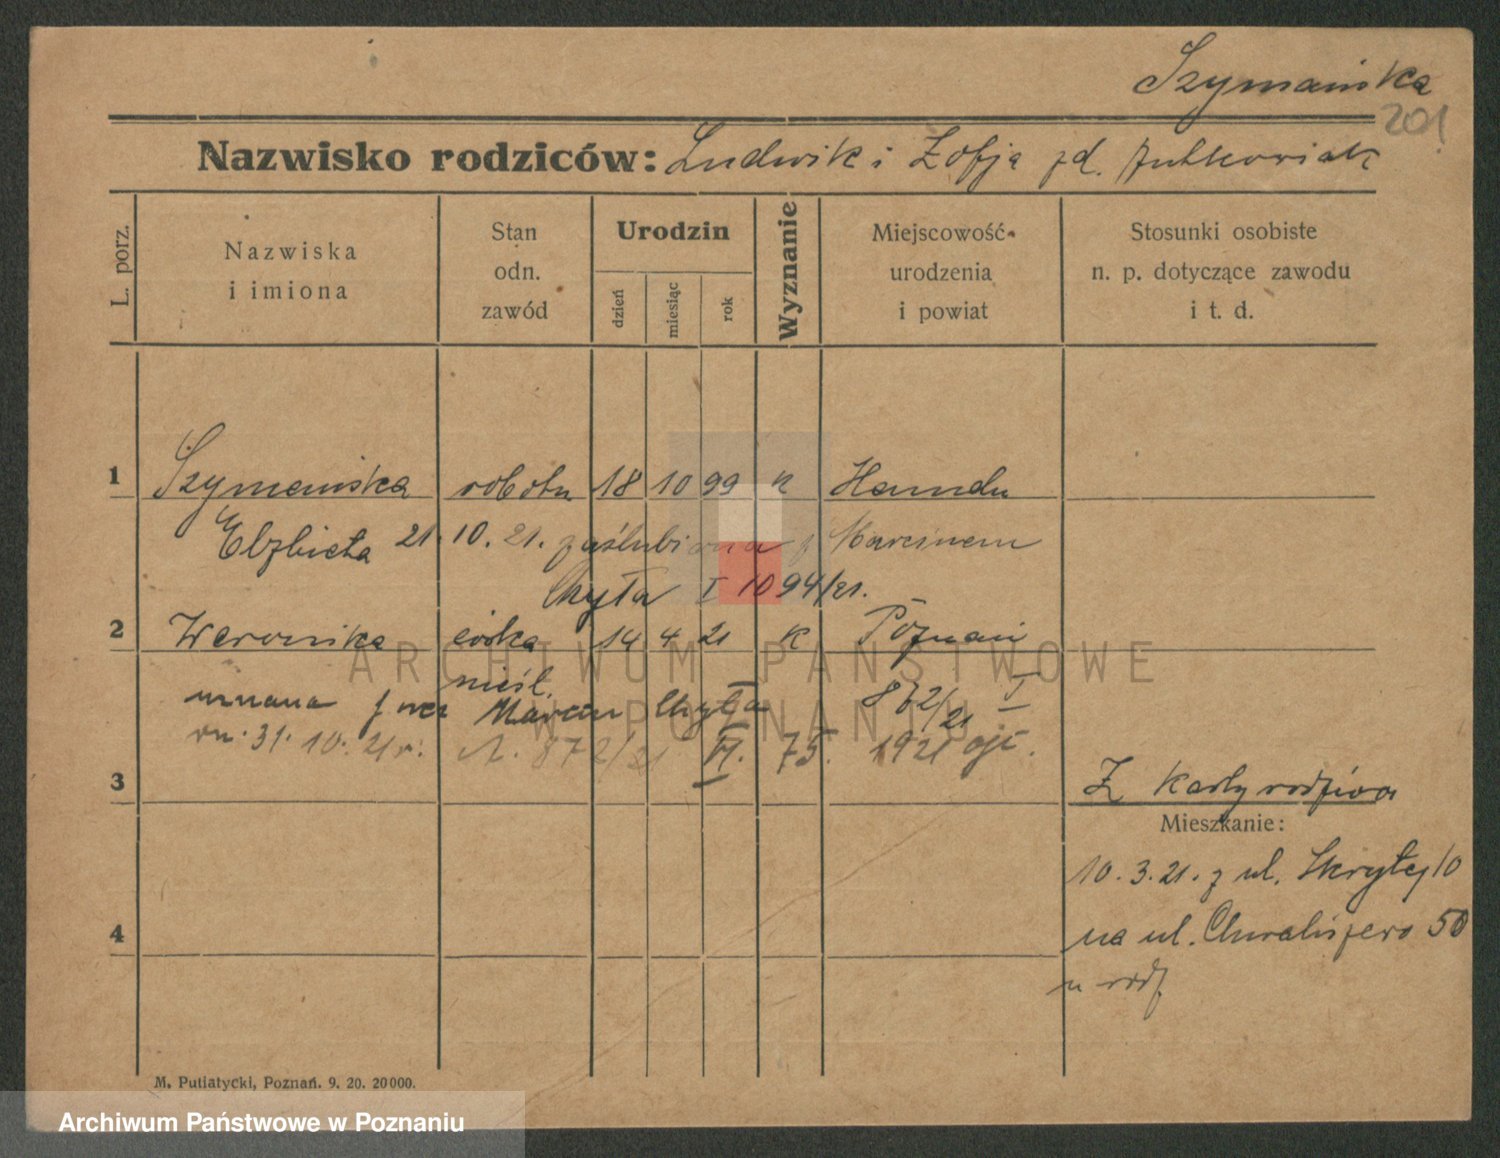 Szymańska
201
Nazwisko rodziców: Ludwik i Zofja zd.
L. porz.
Nazwiska
i imiona
Stan
odn.
zawód
Urodzin
dzień
miesiąc
rok
Wyznanie
Miejscowość
urodzenia
i powiat
Stosunki osobiste
n. p. dotyczące zawodu
i t. d.
1 Szymańska robotn 18 10 99 k
Elzbieta 21.10.21. zaślubiona z Marcinem
Chyła I 1094/21.
2 Weronika córka 14 4 21 k Poznań
nieśl.
uznana przez Marcin Chyła 872/21 I
31.10.21r. 872/21 VI. 75. 1921
3
Z karty rodziców
Mieszkanie:
10.3.21. z ul. Skrytej 10
na ul. Chwaliszewo 50
4
u rodz
M. Putiatycki, Poznań. 9. 20. 20000.
ARCHIWUM PAŃSTWOWE
W POZNANIU
Archiwum Państwowe w Poznaniu